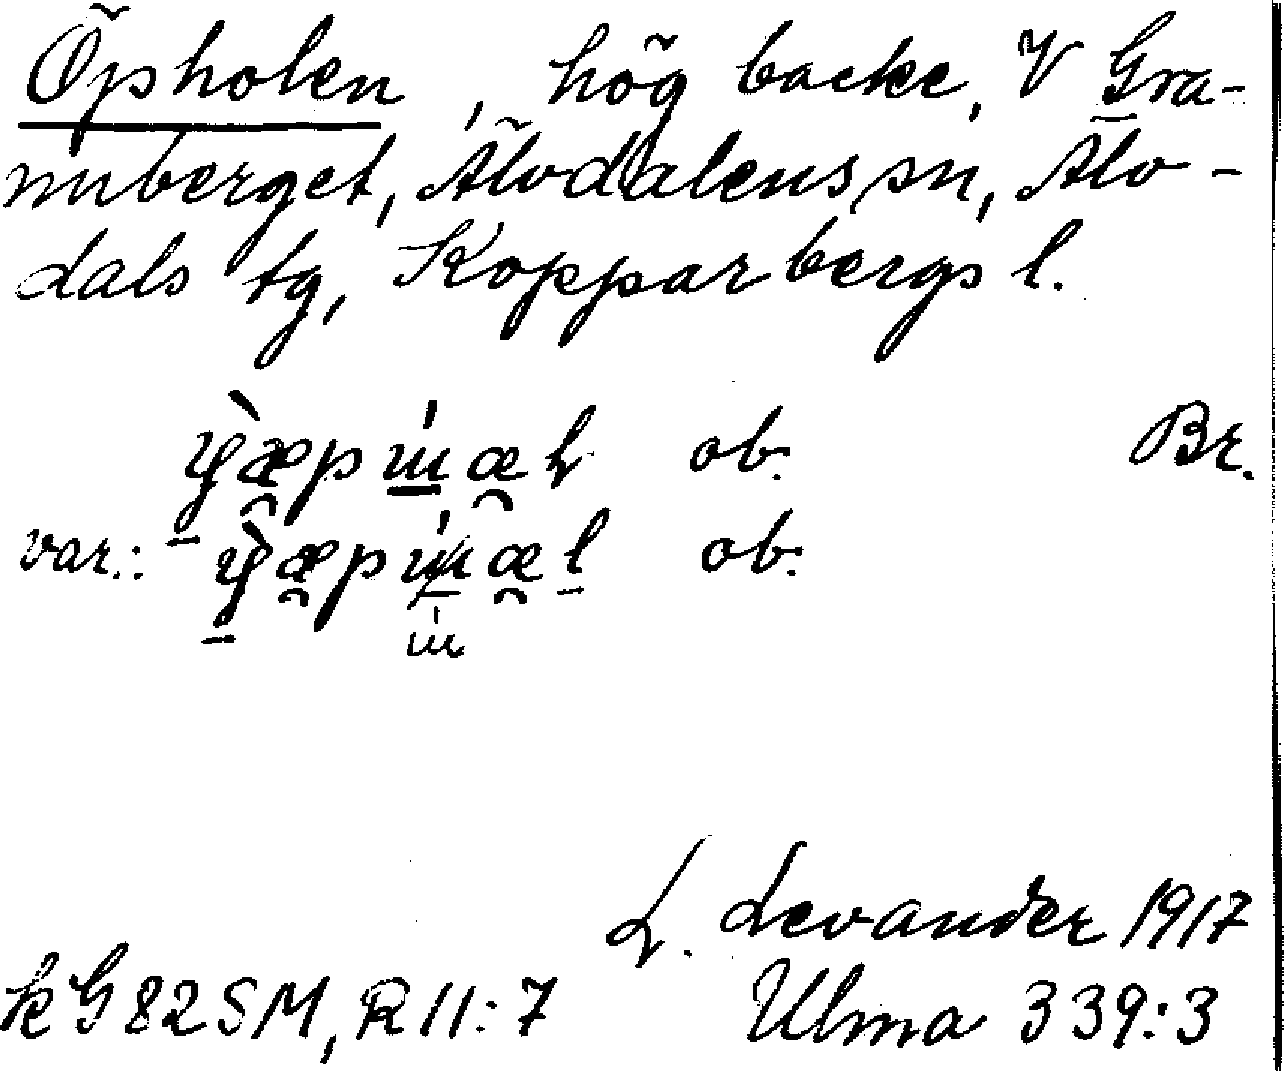 Öpholen, hög backe, V Gra-
nuberget, Älvdalens sn, Älv-
dals tg, Kopparbergs l.
ob. Br.
var.: ob.
L. Levander 1917
kG 82 SM, R 11:7 Ulma 339:3